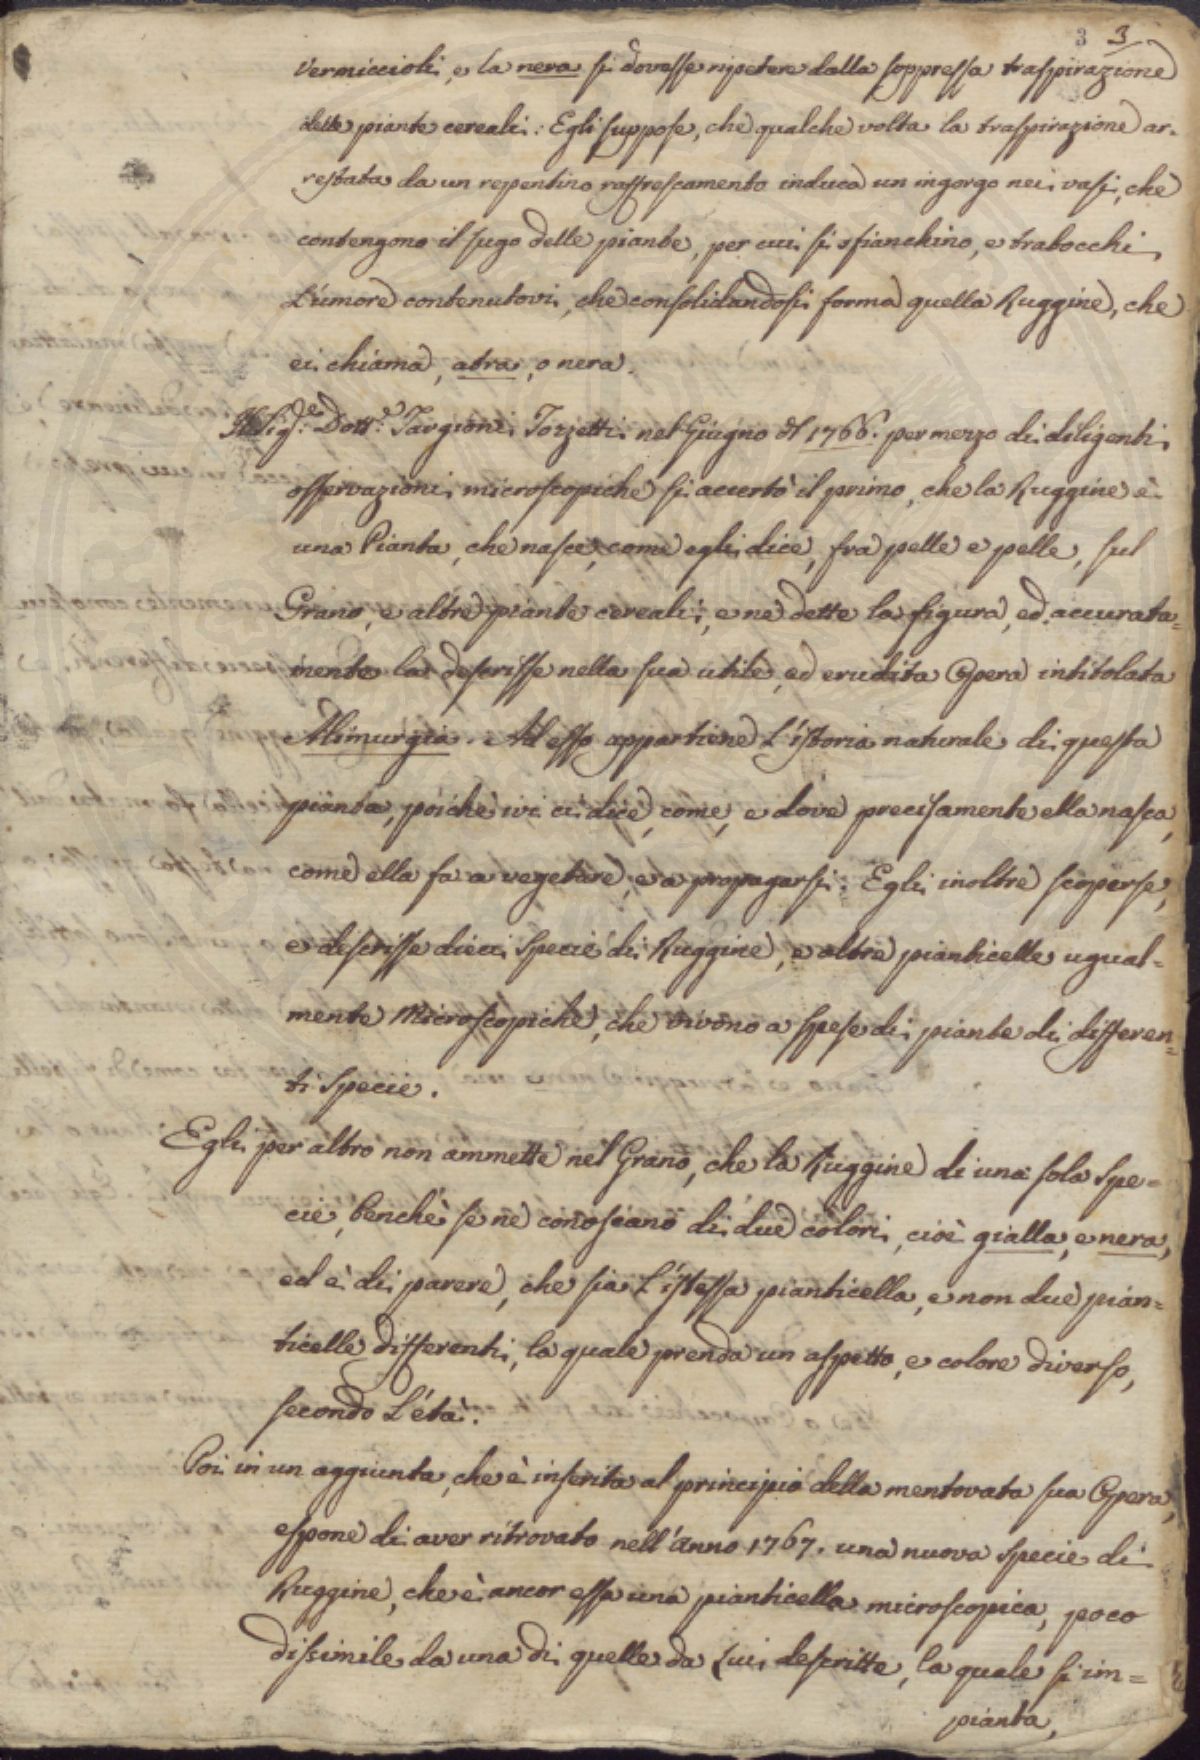 3 3
Vermiccioli, e la nera si dovesse ripetere dalla soppressa traspirazione
delle piante cereali: Egli suppose, che qualche volta la traspirazione ar-
restata da un repentino raffrescamento induca un ingorgo nei vasi, che
contengono il sugo delle piante, per cui si sfianchino, e trabocchi
L'umore contenutovi, che consolidandosi forma quella Ruggine, che
ei chiama, atra, o nera.
Il Sig.e Dott.e Targioni Tozzetti nel Giugno del 1766. per mezzo di diligenti
osservazioni microscopiche si accertò il primo, che la Ruggine è
una Pianta, che nasce, come egli dice, fra pelle e pelle, sul
Grano, e altre piante cereali, e ne dette la figura, ed accurata=
mente la descrisse nella sua utile, ed erudita Opera intitolata
Alimurgia. Ad esso appartiene L'istoria naturale di questa
pianta, poichè ivi ci dice, come, e dove precisamente ella nasca,
come ella fa a vegetare, e a propagarsi. Egli inoltre scoperse,
e descrisse dieci Specie di Ruggine, e altre pianticelle ugual=
mente Microscopiche, che vivono a spese di piante di differen=
ti Specie.
Egli per altro non ammette nel Grano, che la Ruggine di una sola Spe=
cie, benchè se ne conoscano di due colori, cioè gialla, e nera,
ed è di parere, che sia L'istessa pianticella, e non due pian=
ticelle differenti, la quale prenda un aspetto, e colore diverso,
secondo L'età.
Poi in un aggiunta, che è inserita al principio della mentovata sua Opera,
espone di aver ritrovato nell'anno 1767. una nuova specie di
Ruggine, che è ancor essa una pianticella microscopica, poco
dissimile da una di quelle da Lui descritte, la quale si im=
pianta,